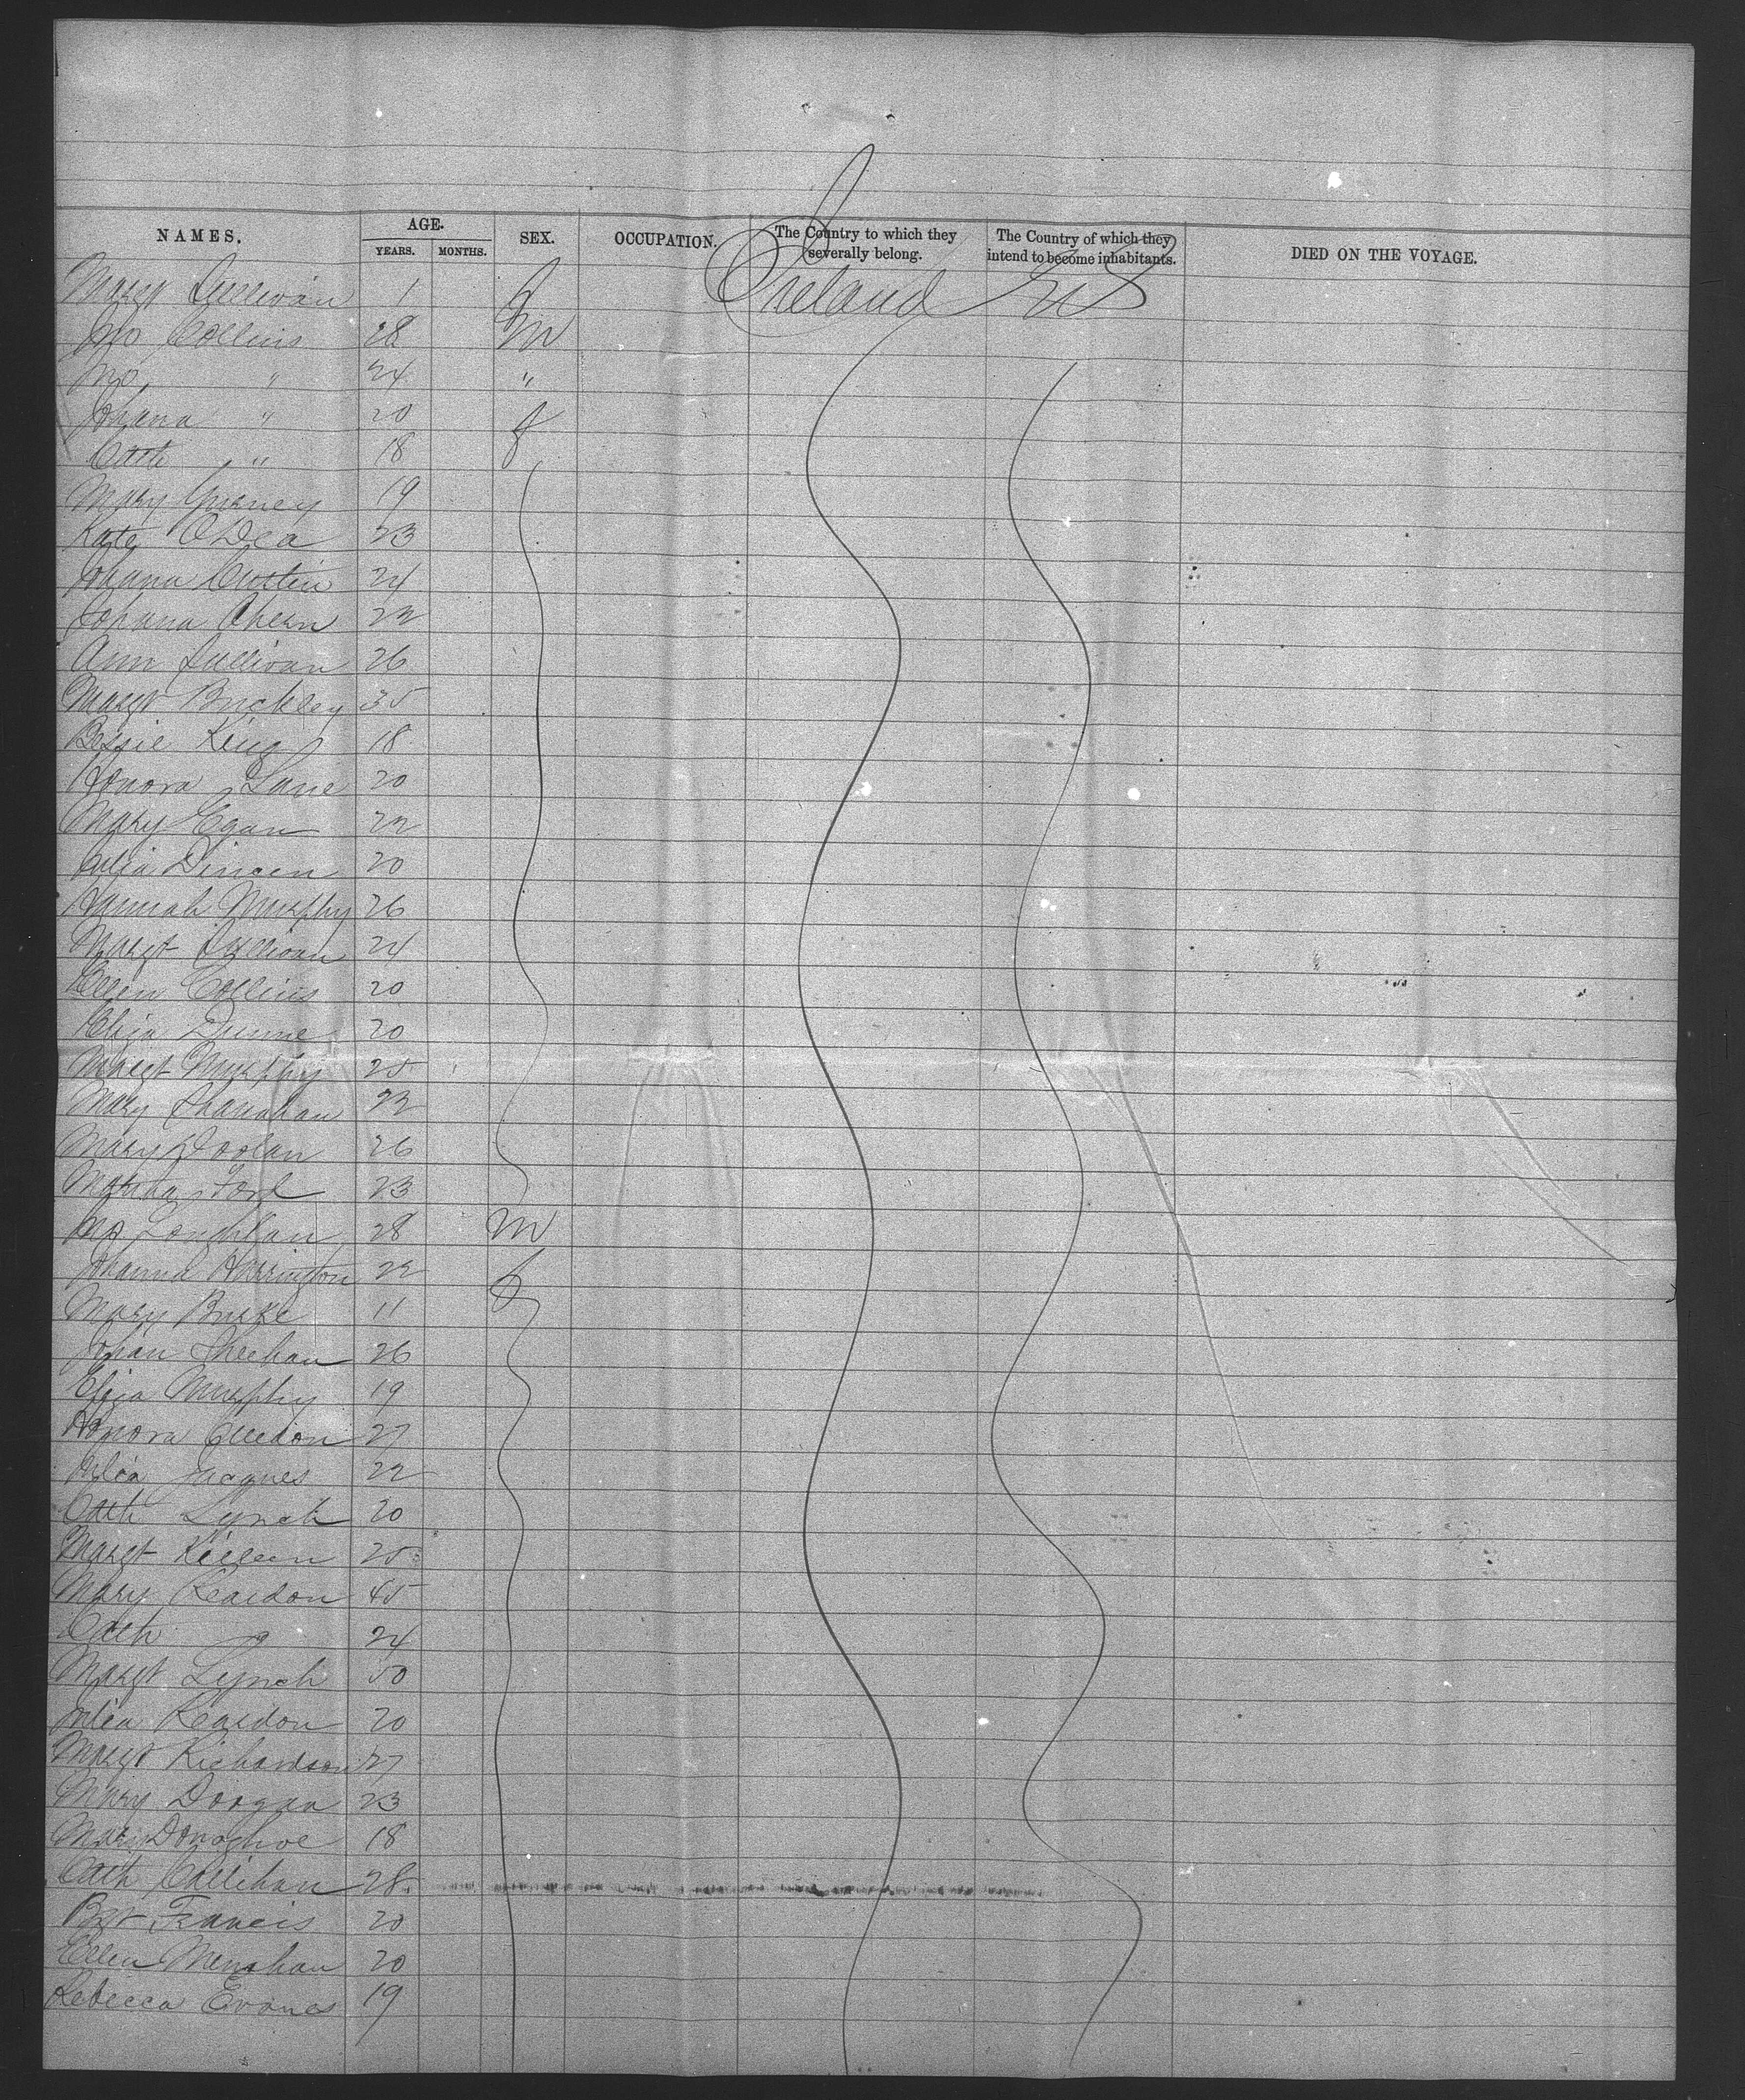 NAMES. AGE. SEX. OCCUPATION. The Country to which they severally belong. The Country of which they intend to become inhabitants. DIED ON THE VOYAGE.
YEARS. MONTHS.
Mary Sullivan 1 f Ireland US
Jno Collins 28 m
Jno " 24 "
Johana " 20 f
Cath " 18 f
Mary 19
Kate O'Dea 23
Johana Custin 24
Johana Ahern 22
Ann Sullivan 26
Margt Buckley 35
Bessie King 18
Honora Lane 20
Mary Egan 22
Julia Dineen 20
Hannah Murphy 26
Margt Sullivan 24
Ellen Collins 20
Eliza Dunne 20
Margt Murphy 25
Mary Shanahan 22
Mary Doolan 26
Martha Ford 23
Jno Loughlan 28 m
Johanna Harrington 22 f
Mary Burke 11
Johan Sheehan 26
Eliza Murphy 19
Honora 27
Julia Jnagnes 22
Cath Lynch 20
Margt Killeen 25
Mary Reardon 45
Cath " 24
Margt Lynch 50
Julia Reardon 20
Margt Richardson 27
Mary Doogan 23
Mary Donoghoe 18
Cath Callihan 28
Bgt Francis 20
Ellen Menahan 20
Rebecca Evanes 19